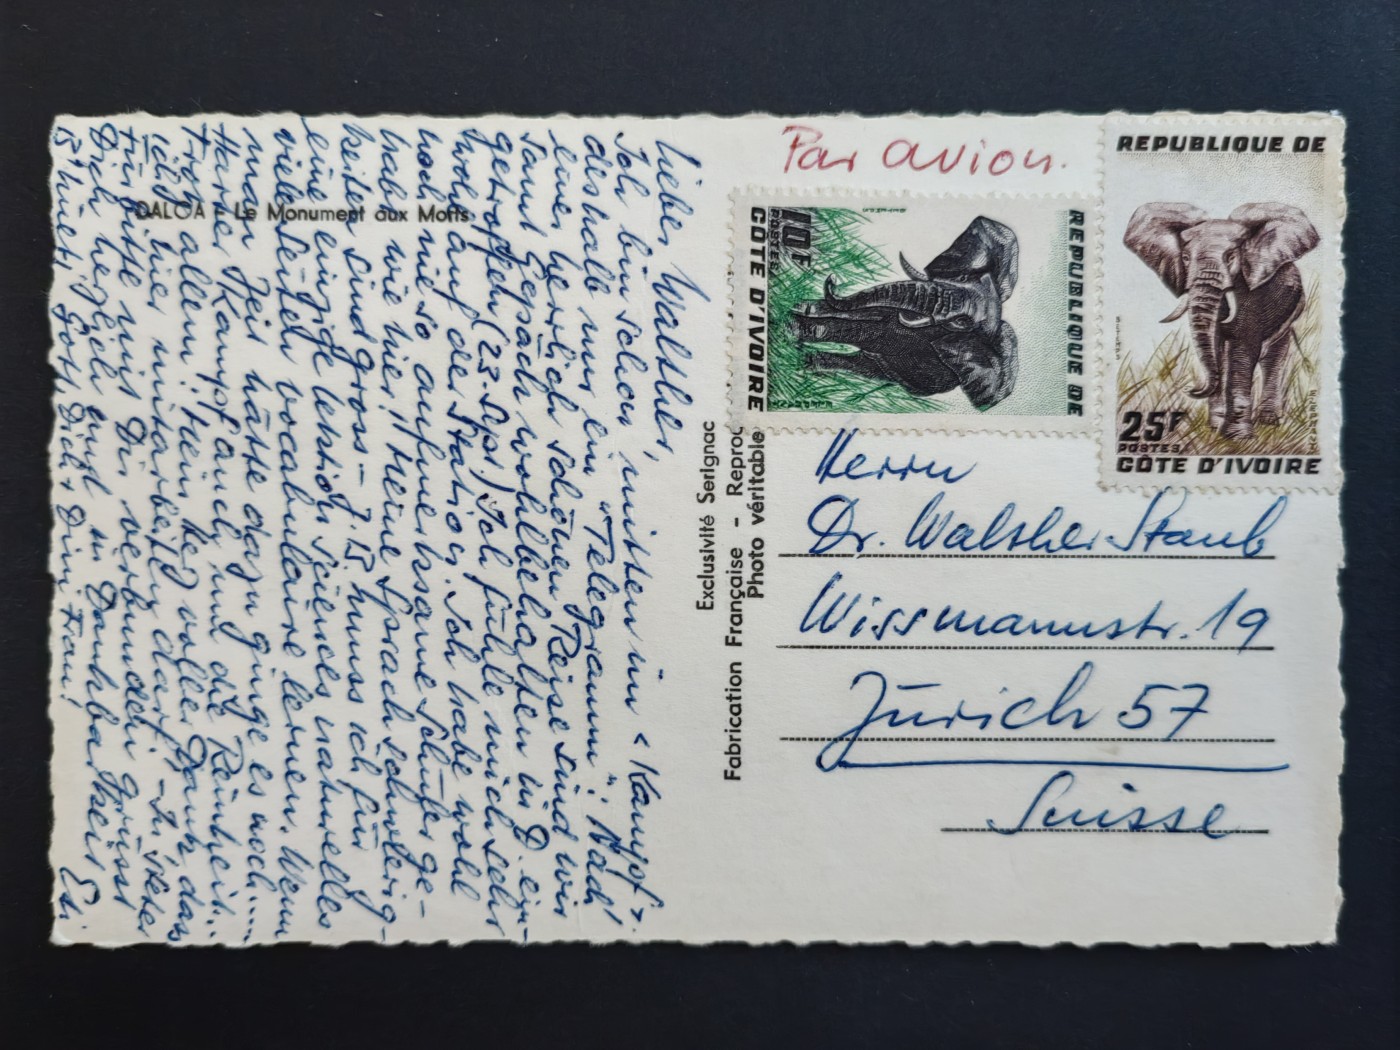 Lieber Walther,
Ich bin schon mitten im "Kampf".
deshalb nur ein "Telegramm":
einer herrlich schönen Reise sind wir
samt Gepäck wohlbehalten in D. ein-
getroffen (23. Sept.) Ich fühle mich sehr
wohl auf der Station. Ich habe wohl
noch nie so aufmerksame Schüler ge-
habt wie hier! Meine Sprachschwierig-
keiten sind gross - z.B. muss ich für
eine einzige Lektion
viele Seiten vocabulaire lernen. Wenn
man Zeit hätte dazu ginge es noch....
Harter Kampf auch um die Reinheit...
Trotz allem: Mein Herz voller Dank, dass
ich hier mitarbeiten darf. - In steter
Fürbitte mit Dir verbunden grüsst
Dich herzlich und in Dankbarkeit
Behüet Gott Dich + Dini Frau!
DALOA - Le Monument aux Morts
Exclusivité Serignac
Fabrication Française - Reproc
Photo véritable
Par avion.
REPUBLIQUE DE
CÔTE D'IVOIRE
10F
POSTES
REPUBLIQUE DE
25F
POSTES
CÔTE D'IVOIRE
Herrn
Dr. Walther Staub
Wissmannstr. 19
Zürich 57
Suisse